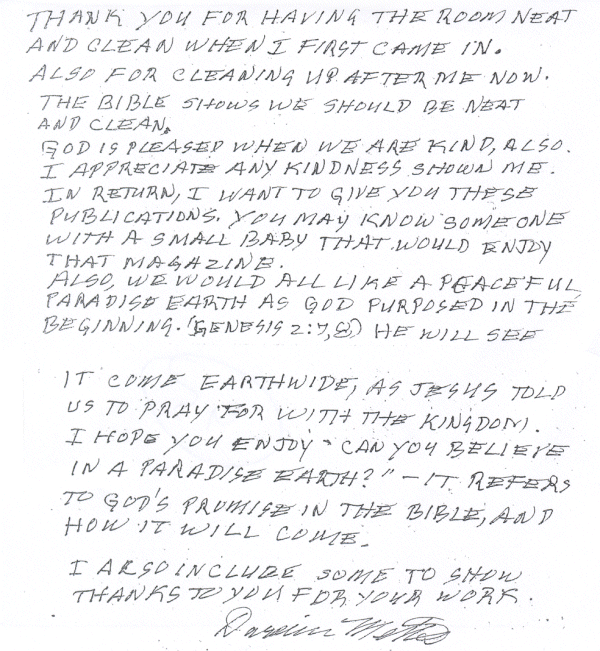 THANK YOU FOR HAVING THE ROOM NEAT
AND CLEAN WHEN I FIRST CAME IN.
ALSO FOR CLEANING UP AFTER ME NOW.
THE BIBLE SHOWS WE SHOULD BE NEAT
AND CLEAN.
GOD IS PLEASED WHEN WE ARE KIND, ALSO.
I APPRECIATE ANY KINDNESS SHOWN ME.
IN RETURN, I WANT TO GIVE YOU THESE
PUBLICATIONS. YOU MAY KNOW SOMEONE
WITH A SMALL BABY THAT WOULD ENJOY
THAT MAGAZINE.
ALSO, WE WOULD ALL LIKE A PEACEFUL
PARADISE EARTH AS GOD PURPOSED IN THE
BEGINNING. (GENESIS 2:7,8) HE WILL SEE
IT COME EARTHWIDE, AS JESUS TOLD
US TO PRAY FOR WITH THE KINGDOM.
I HOPE YOU ENJOY "CAN YOU BELIEVE
IN A PARADISE EARTH?" – IT REFERS
TO GOD'S PROMISE IN THE BIBLE, AND
HOW IT WILL COME.
I ARSO INCLUDE SOME TO SHOW
THANKS TO YOU FOR YOUR WORK.